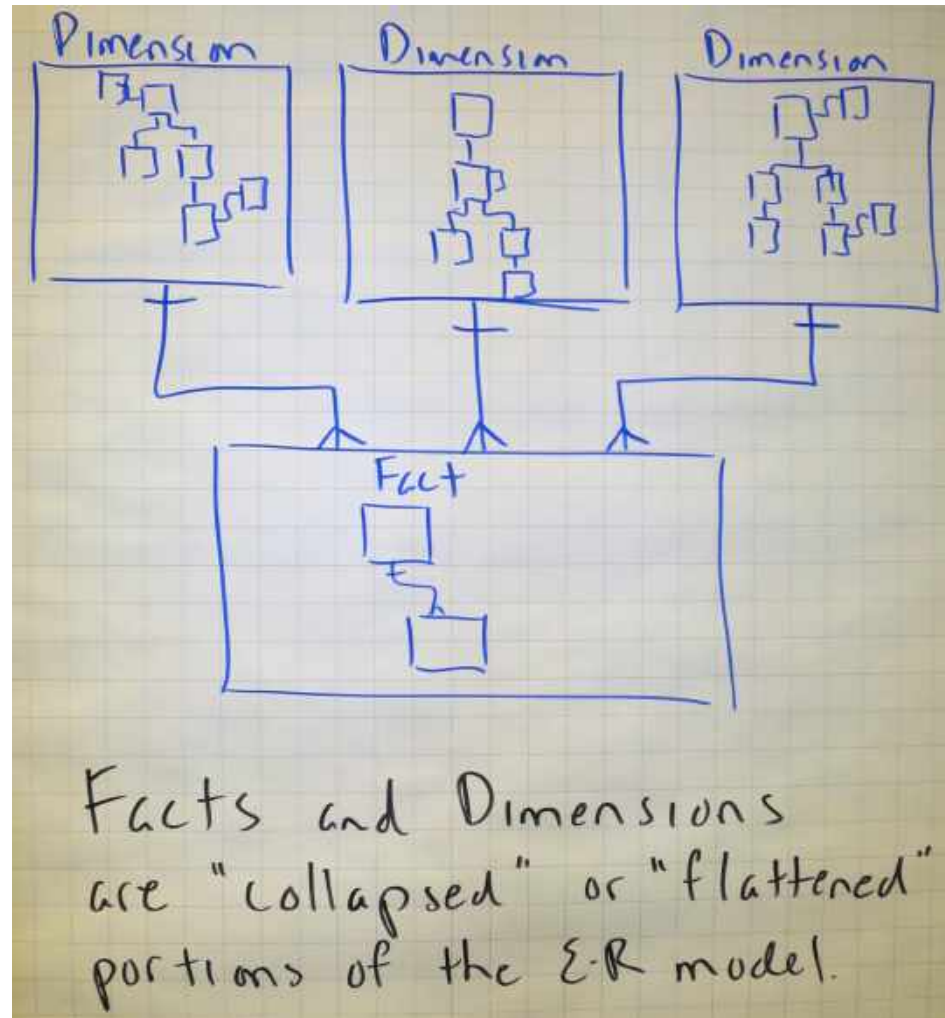 Dimension Dimension Dimension
Fact
Facts and Dimensions
are "collapsed" or "flattened"
portions of the E-R model.